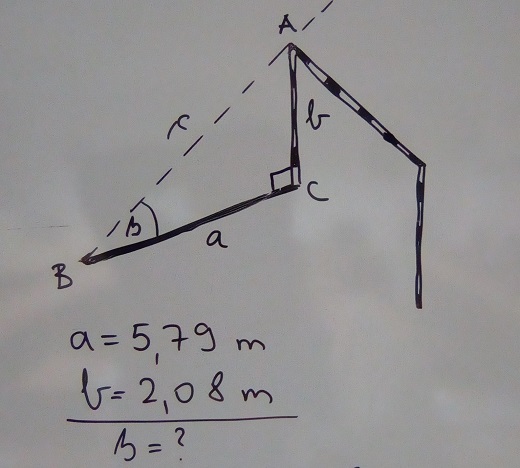 A
c
b
β
C
a
B
a = 5,79 m
b = 2,08 m
β = ?